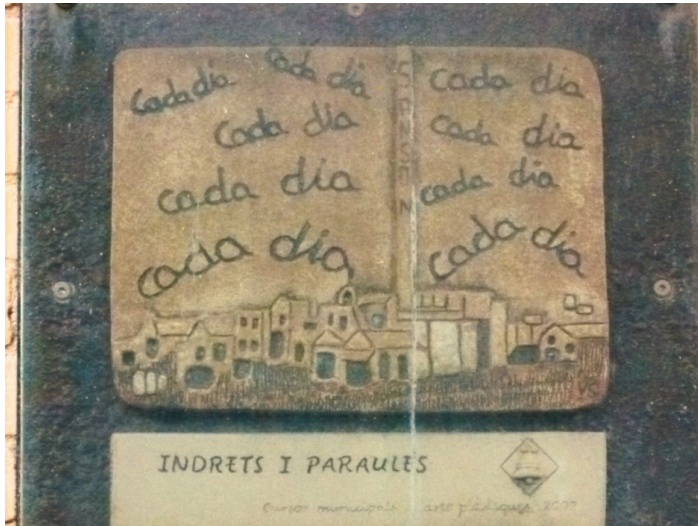 cada dia
cada dia
cada dia
cada dia
cada dia
cada dia
cada dia
cada dia
cada dia
INDRETS I PARAULES
cursos municipals arts plàstiques